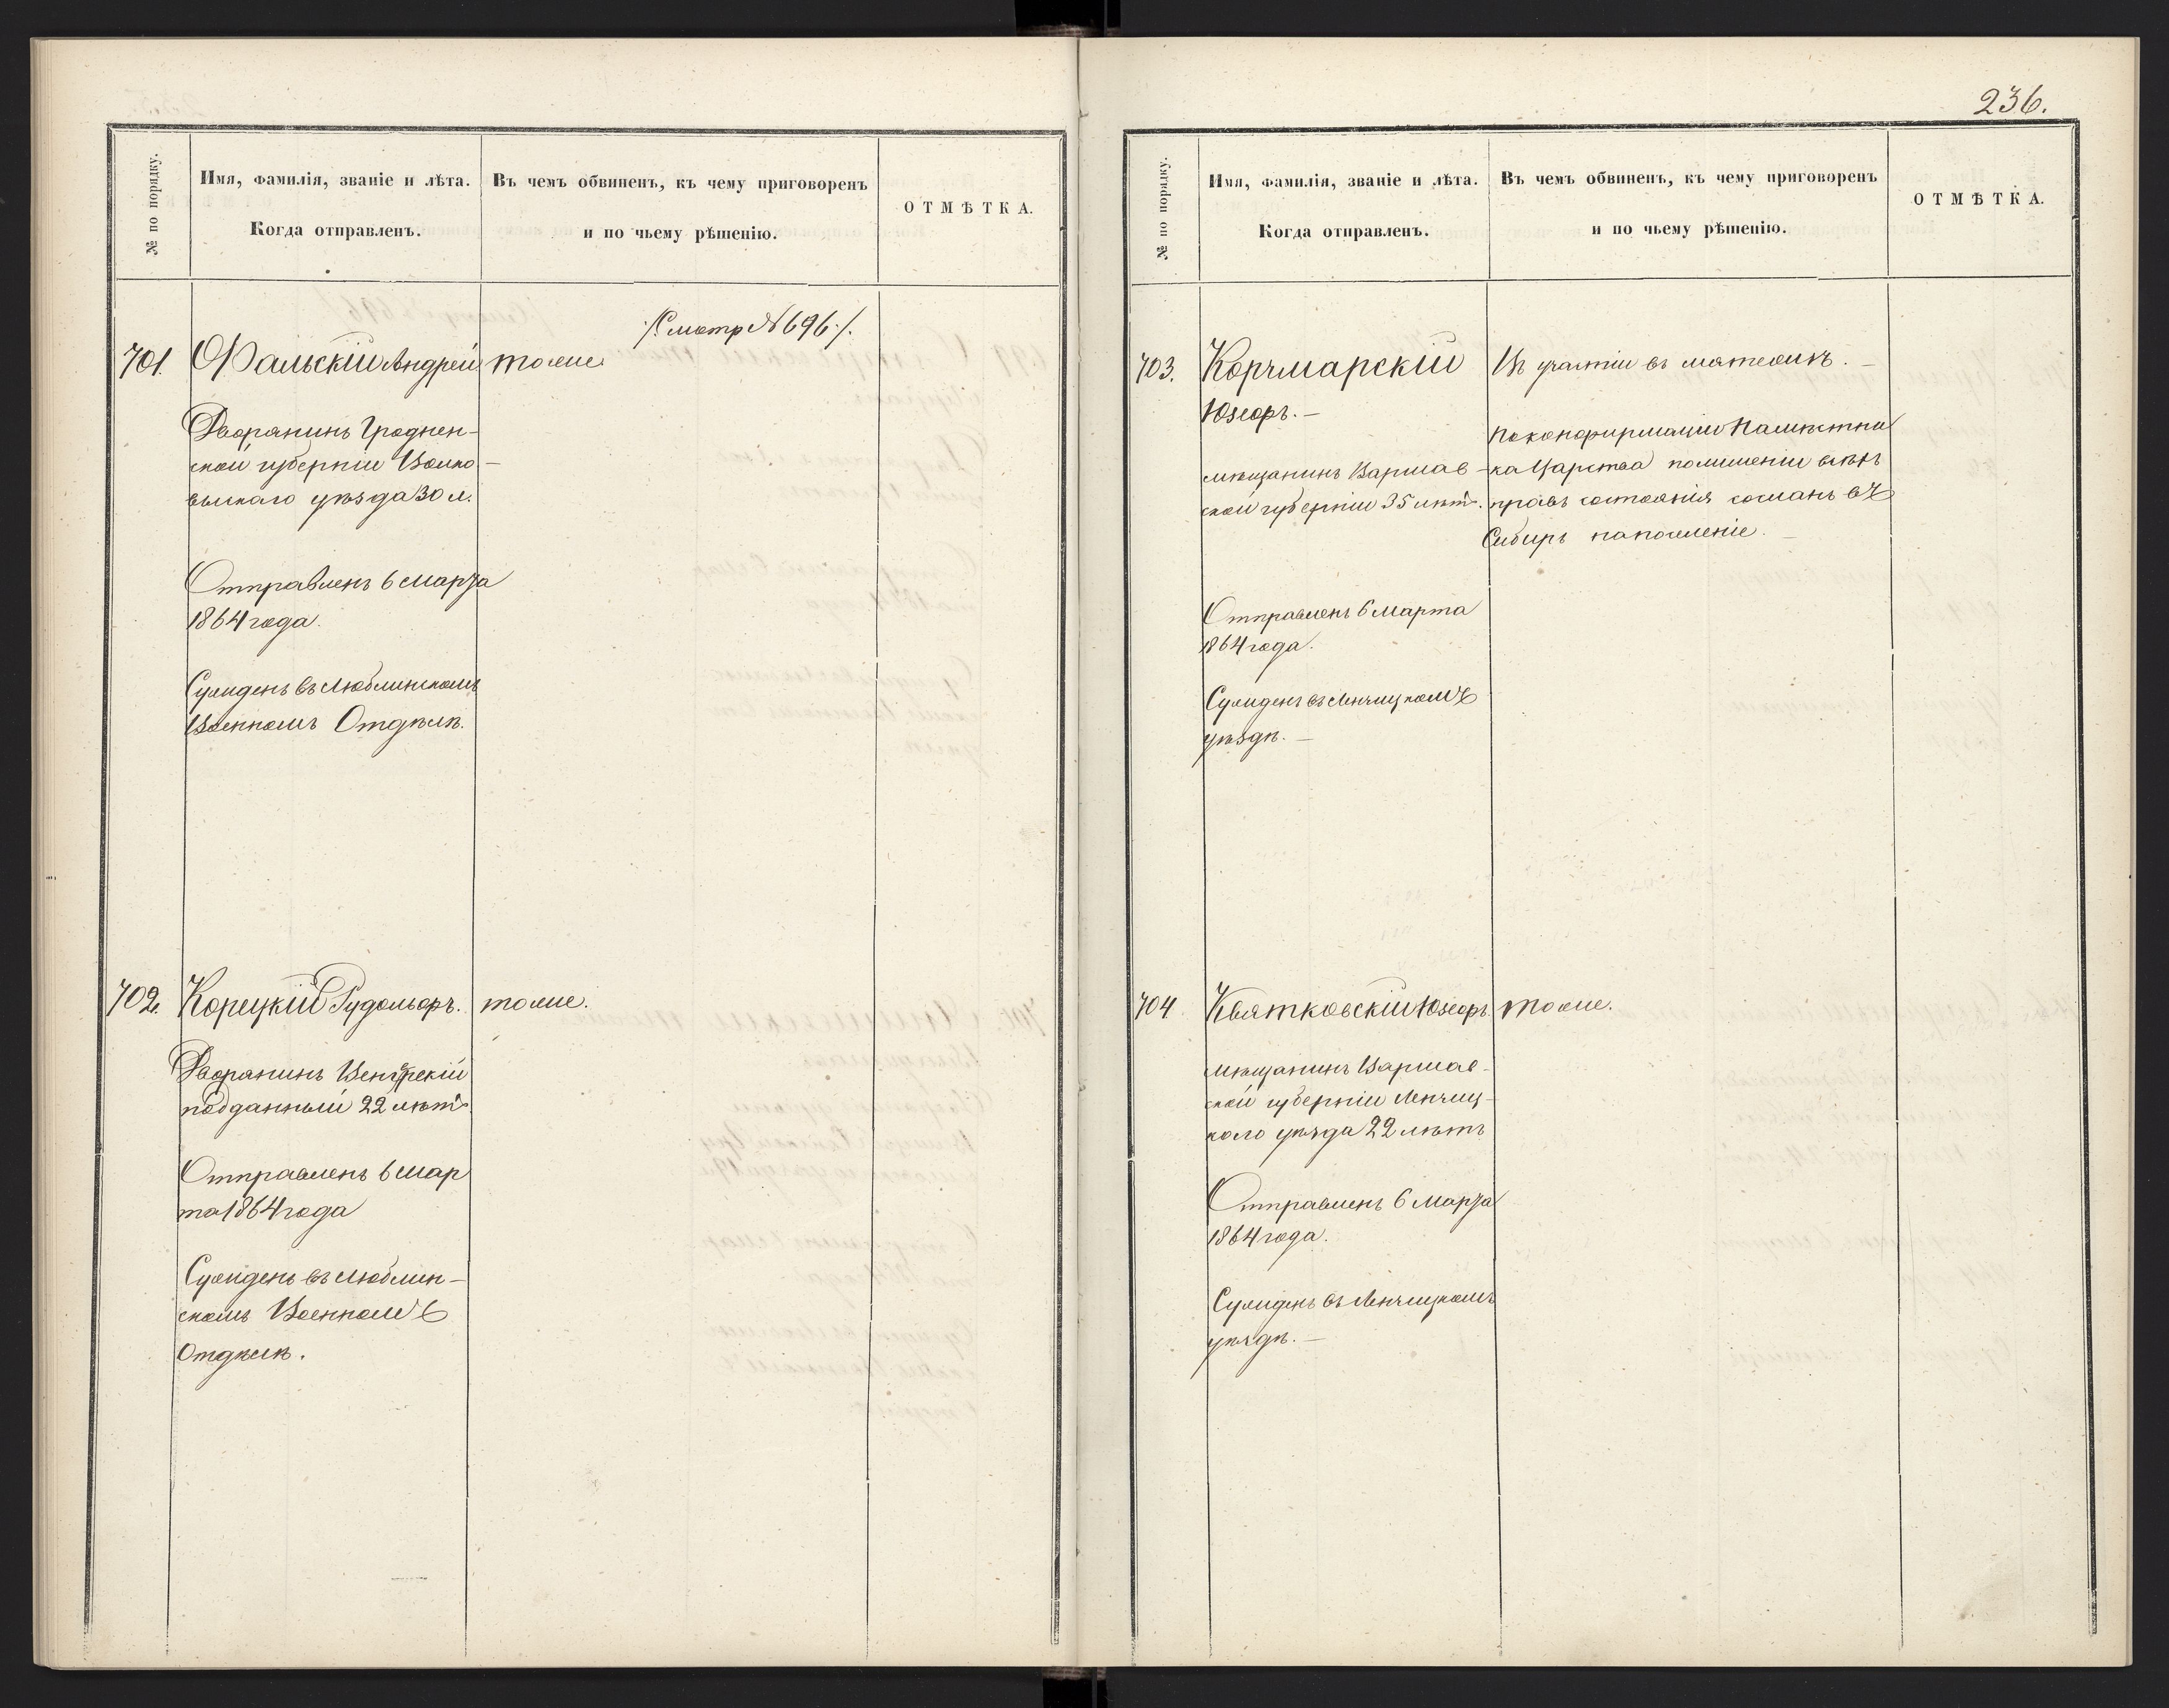 № по порядку.
Имя, фамилія, званіе и лѣта.
Когда отправленъ.
Въ чемъ обвиненъ, къ чему приговоренъ
и по чьему рѣшенію.
ОТМѢТКА.
/:Смотр № 696:/.
701. Фальскій Андрей тоже
Дворянинъ Гроднен-
ской губерніи Волко-
выскаго уѣзда 30 л.
Отправленъ 6 Марта
1864 года.
Сужденъ въ Люблинскомъ
Военномъ Отдѣлѣ.
702. Корецкій Рудольфъ. тоже.
Дворянинъ Венгерскій
подданный 22 лѣтъ
Отправленъ 6 Мар
та 1864 года
Сужденъ въ Люблин-
скомъ Военномъ
Отдѣлѣ.
236.
№ по порядку.
Имя, фамилія, званіе и лѣта.
Когда отправленъ.
Въ чемъ обвиненъ, къ чему приговоренъ
и по чьему рѣшенію.
ОТМѢТКА.
703. Корчмарскій
Юзефъ.-
мѣщанинъ Варшав-
ской губерніи 35 лѣтъ.
Въ участіи въ мятежѣ.-
По конфирмаціи Намѣстни
ка Царства по лишеніи всѣхъ
правъ состоянія сосланъ въ
Сибирь на поселеніе.-
Отправленъ 6 Марта
1864 года.
Сужденъ въ Ленчицкомъ
уѣздѣ.-
704 Квятковскій Юзефъ тоже.
мѣщанинъ Варшав-
ской губерніи Ленчиц-
каго уѣзда 22 лѣтъ
Отправленъ 6 Марта
1864 года.
Сужденъ въ Ленчицкомъ
уѣздѣ.-